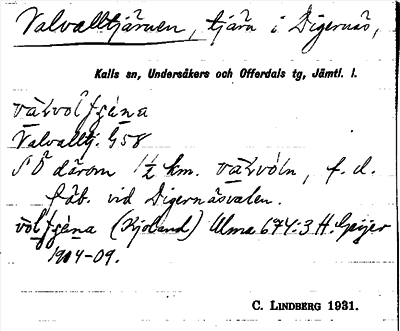 Valvalltjärnen, tjärn i Digernäs,
Kalls sn, Undersåkers och Offerdals tg, Jämtl. l.
Valvalltj. G58
S Ö därom 1½ km. f.d.
fäb. vid Digernäsvalen.
(Kjoland) Ulma 674:3 H. Geijer
1904-09.
C. LINDBERG 1931.